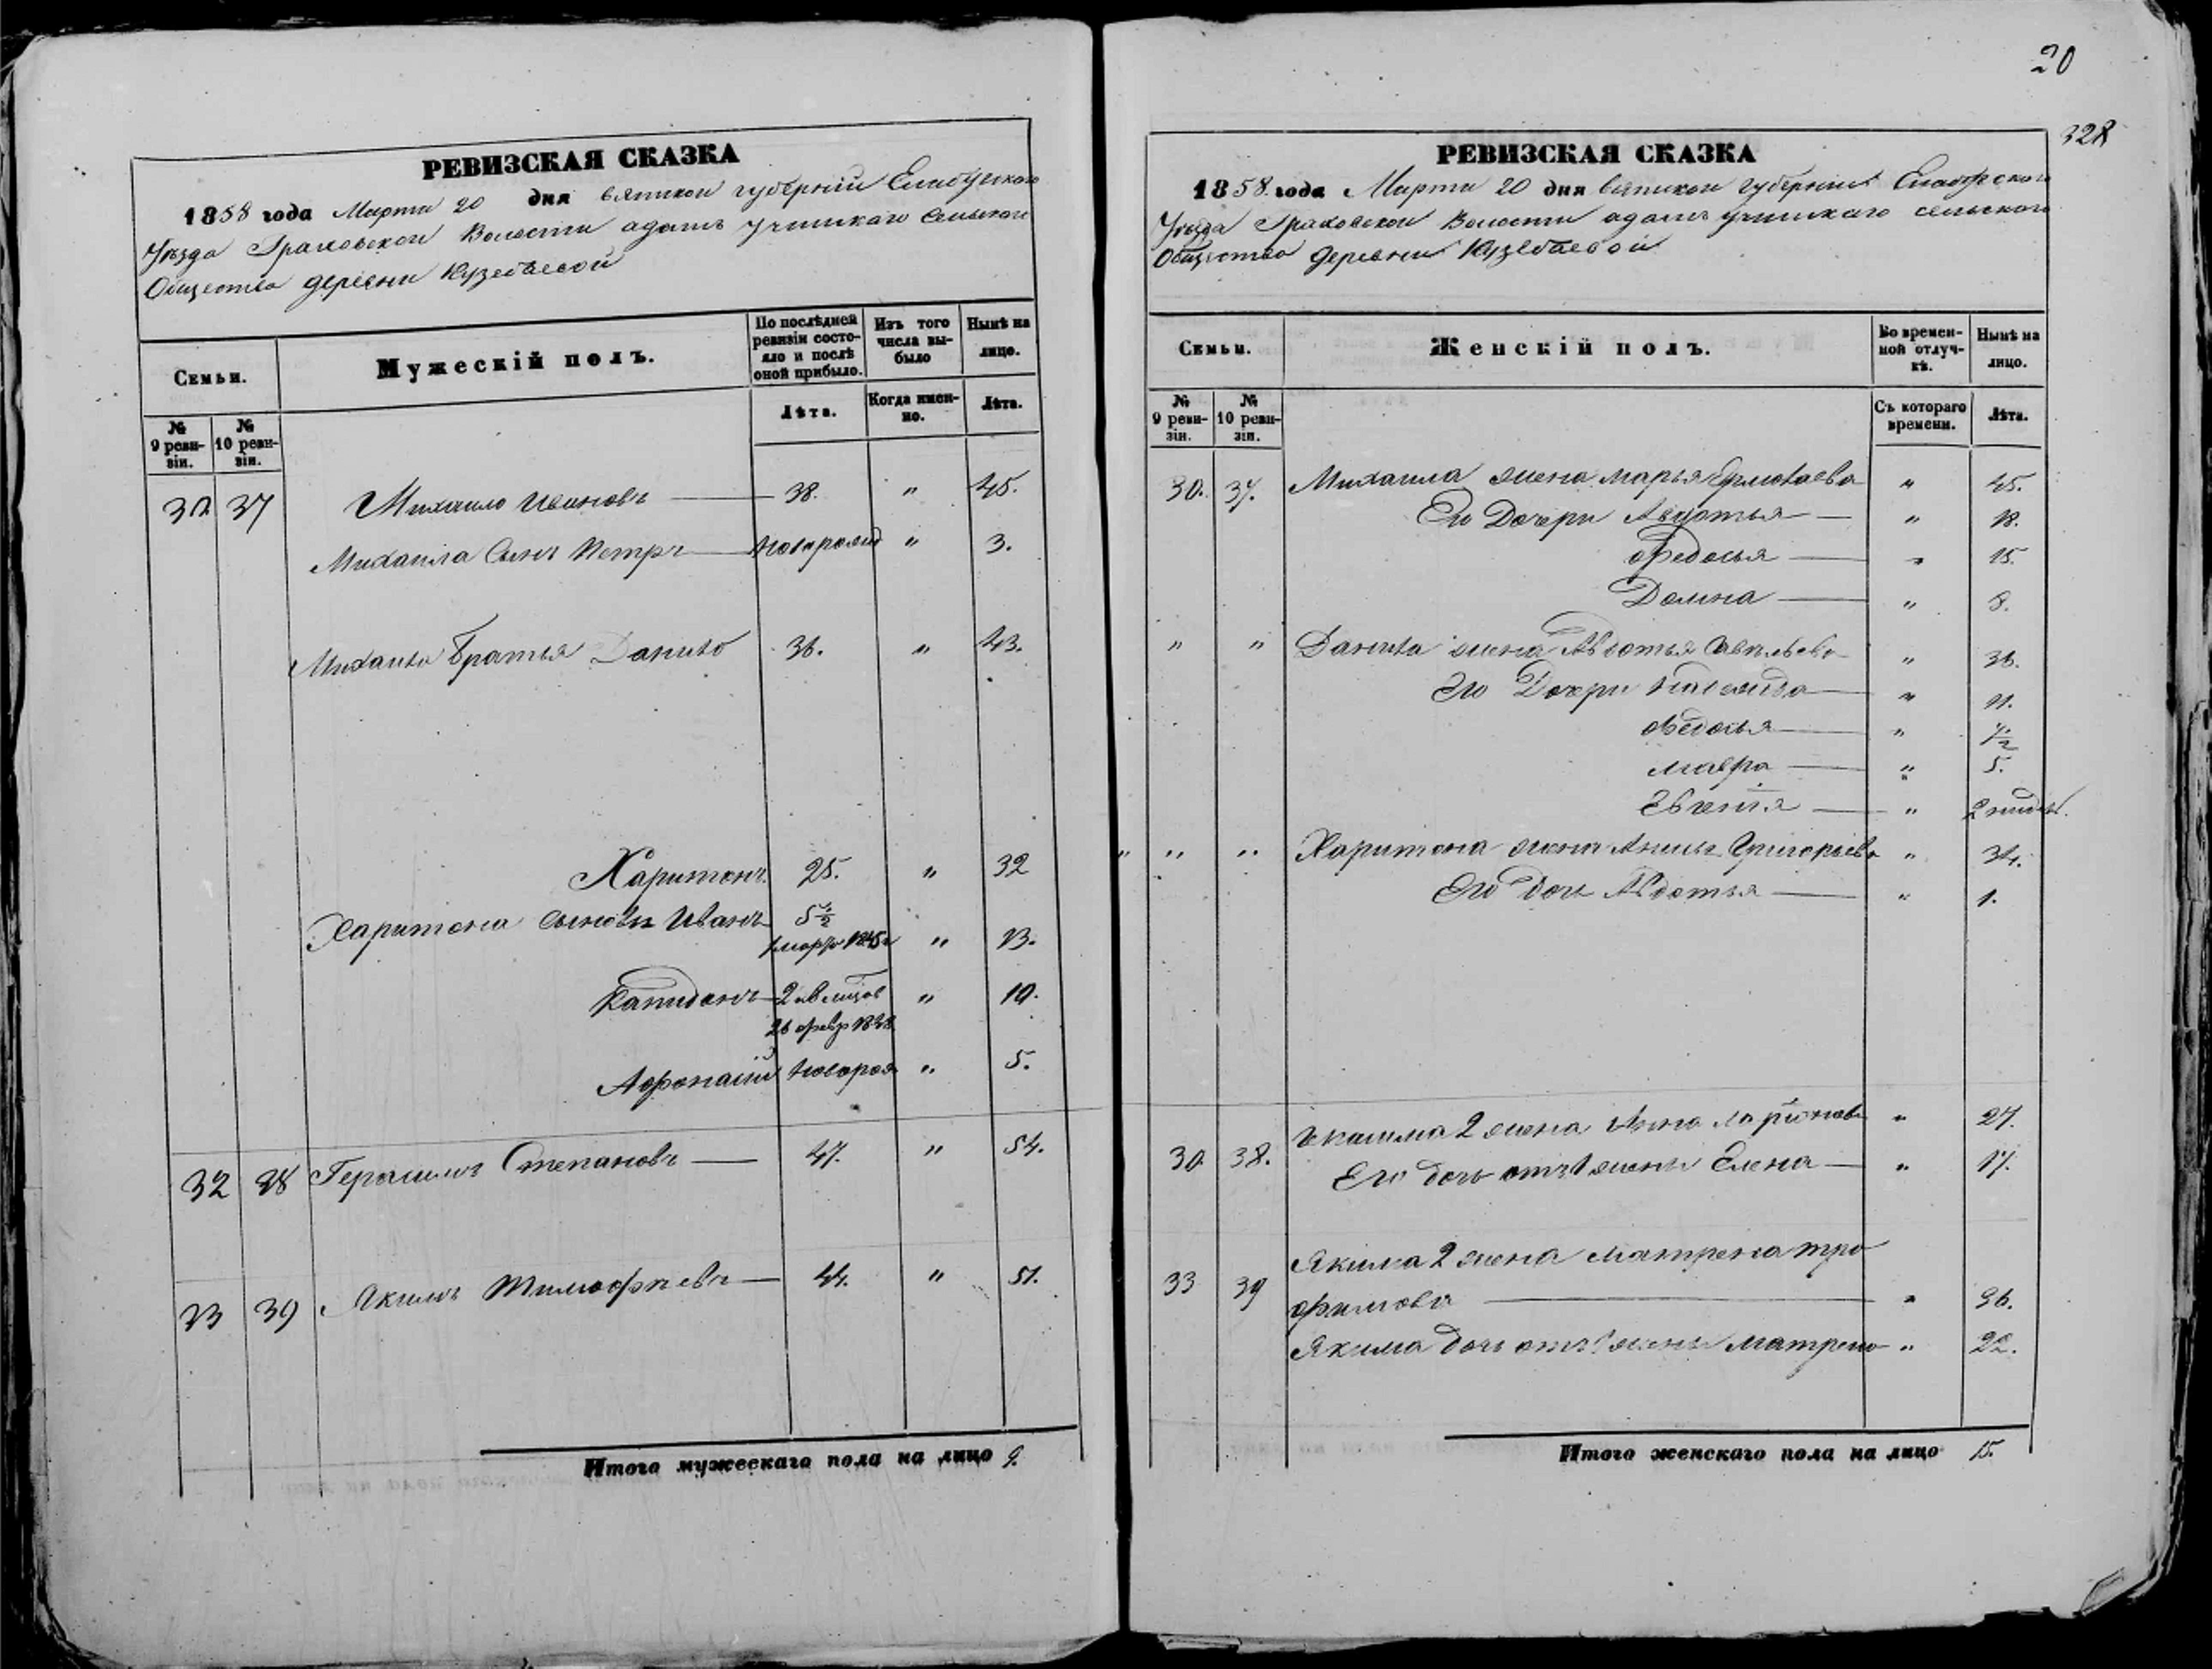 РЕВИЗСКАЯ СКАЗКА
1858 года Марта 20 дня Вятской губернии Елабужского
Уезда Граховской Волости Учинскаго Сельского
Общества деревни Кузебаевой
Семьи.
Мужескій полъ.
По послѣдней ревизіи состояло и послѣ оной прибыло.
Изъ того числа выбыло
Нынѣ на лицо.
№ 9 ревизіи.
№ 10 ревизіи.
Лѣта.
Когда именно.
Лѣта.
30 37 Михаило Ивановъ — 38. " 45.
Михаила Сынъ Петръ — новорожд " 3.
Михаила братья Данило 36. " 43.
Харитонъ 25. " 32
Харитона сыновья Иванъ 5½ " 13.
Капидонъ 2 " 10.
Афонасий новорож " 5.
32 38 Герасимъ Степановъ — 47. " 54.
33 39 Якимъ Тимофѣевъ — 44. " 51.
Итого мужескаго пола на лицо 9.
20
328
РЕВИЗСКАЯ СКАЗКА
1858 года Марта 20 дня Вятской губернии Елабужского
Уезда Граховской Волости Учинскаго сельского
Общества деревни Кузебаевой
Семьи.
Женскій полъ.
Во временной отлучкѣ.
Нынѣ на лицо.
№ 9 ревизіи.
№ 10 ревизіи.
Съ котораго времени.
Лѣта.
30. 37. Михаила жена Марья Ермолаева " 45.
Его Дочери Авдотья — " 18.
Федосья — " 15.
Домна — " 8.
" " Данила жена Авдотья Савельева " 36.
Его Дочери — " 11.
Федосья — " 7½
Мавра — " 5.
Евгения — " 2 недѣл.
" " Харитона жена Григорьева " 34.
Его дочь Авдотья — " 1.
30. 38. 2 жена Анна Ларионова " 27.
Его дочь отъ 1 жены Елена — " 17.
33 39 Якима 2 жена Матрена Тро
фимова — " 36.
Якима дочь отъ 1 жены Матрена " 22.
Итого женскаго пола на лицо 15.